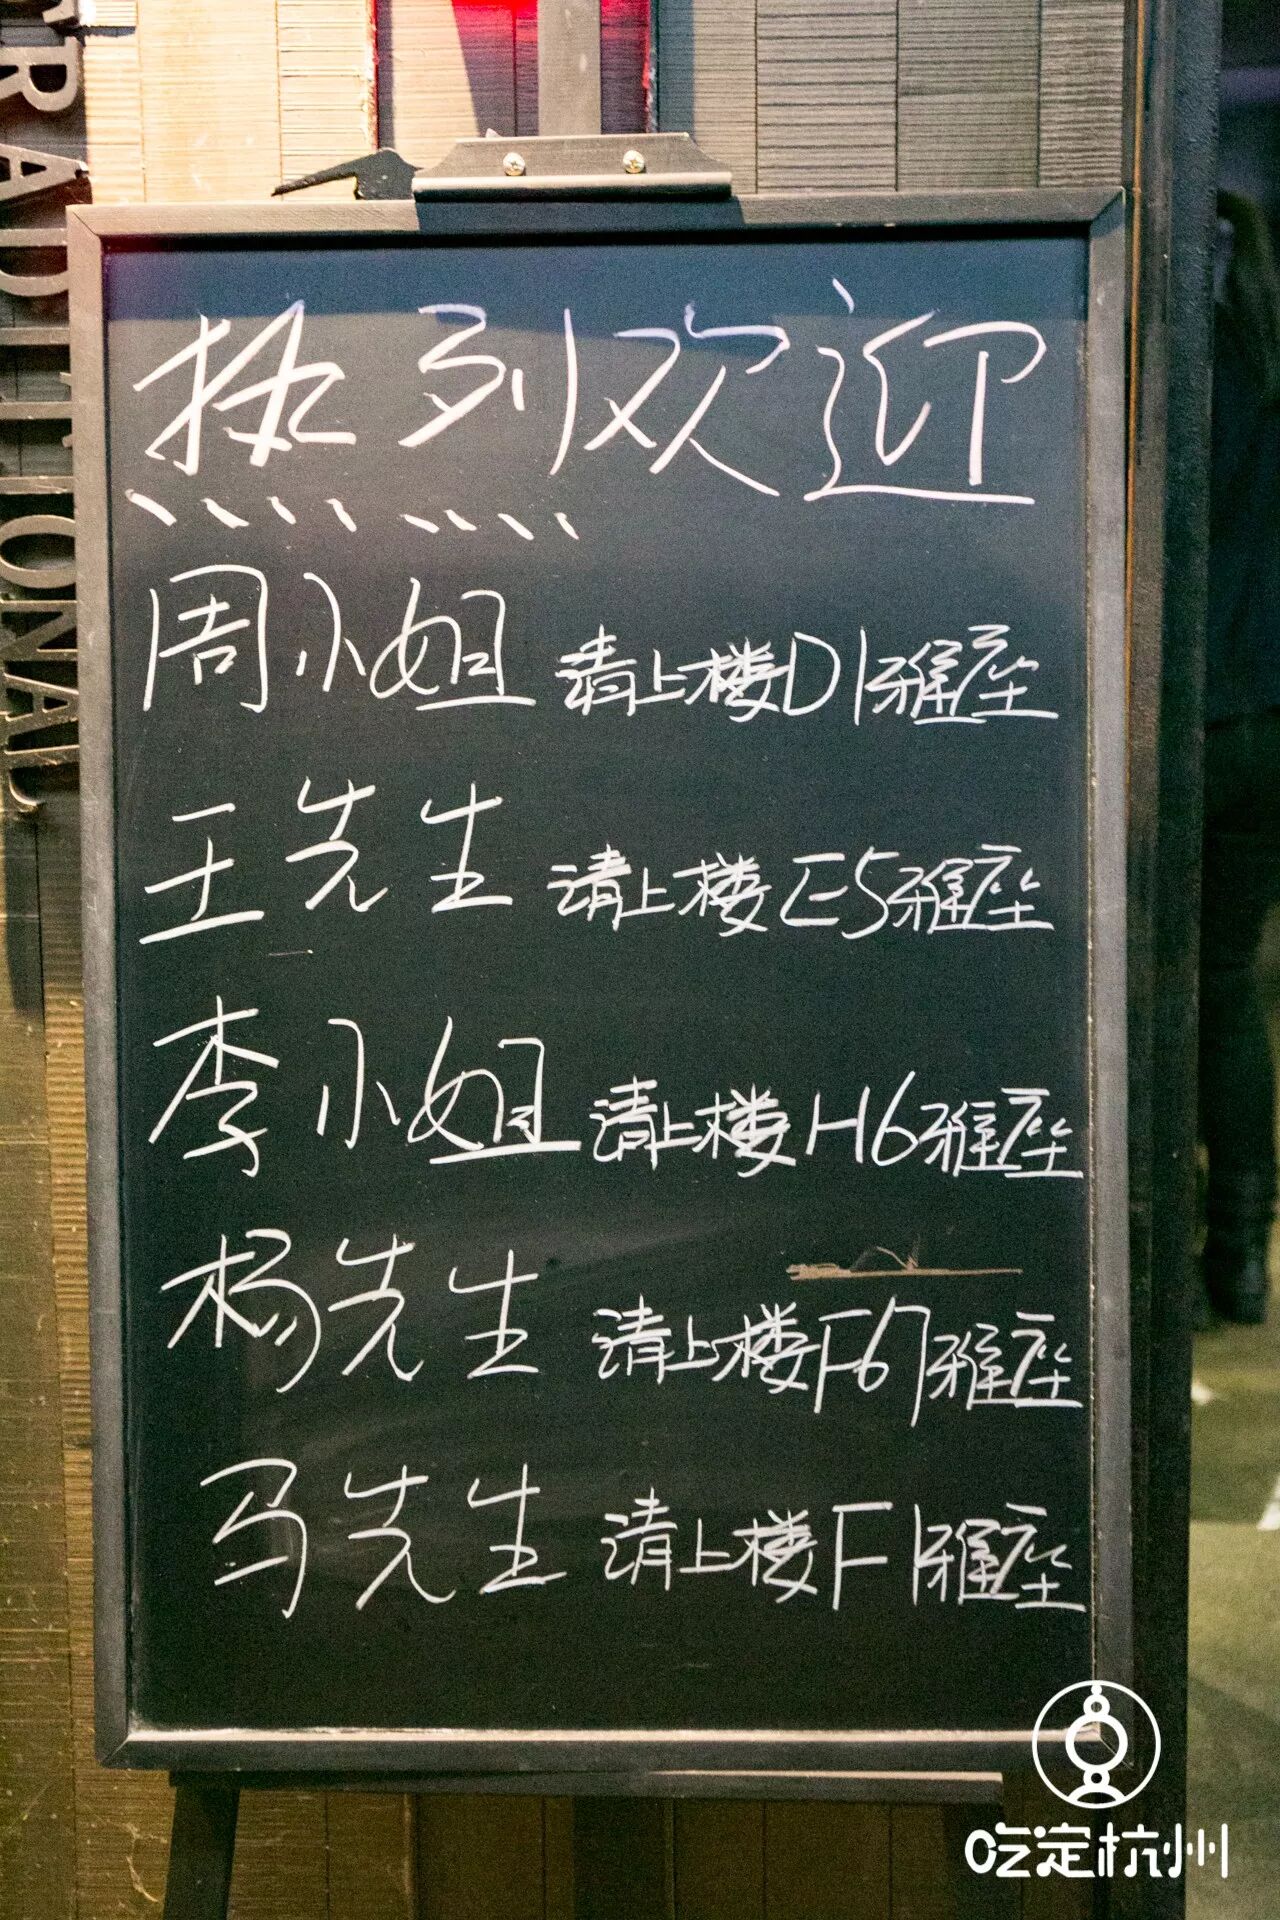 TRADITIONAL
热烈欢迎
周小姐 请上楼D1雅座
王先生 请上楼E5雅座
李小姐 请上楼H6雅座
杨先生 请上楼F67雅座
马先生 请上楼F1雅座
吃定杭州